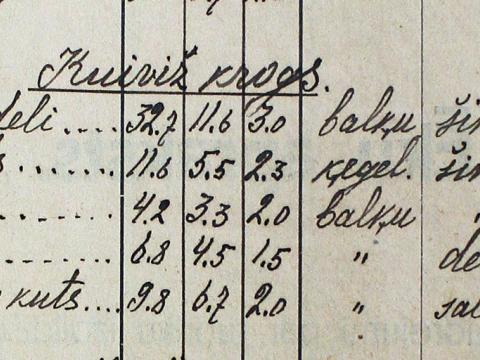 Kuiviž krogs.
deli .... 32.7 11.6 3.0 balķu šin
s ...... 11.6 5.5 2.3 ķeģel. šin
........ 4.2 3.3 2.0 balķu "
........ 6.8 4.5 1.5 " de
kuts.... 9.8 6.7 2.0 " sal